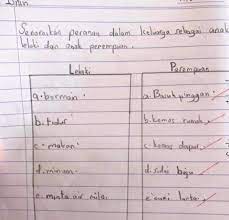 Senaraikan peranan dalam keluarga sebagai anak
lelaki dan anak perempuan.
Lelaki
Perempuan
a. bermain
a. Basuh pinggan
b. tidur
b. kemas rumah
c. makan
c. kemas dapur
d. minum
d. sidai baju
e. minta air
e. lantai